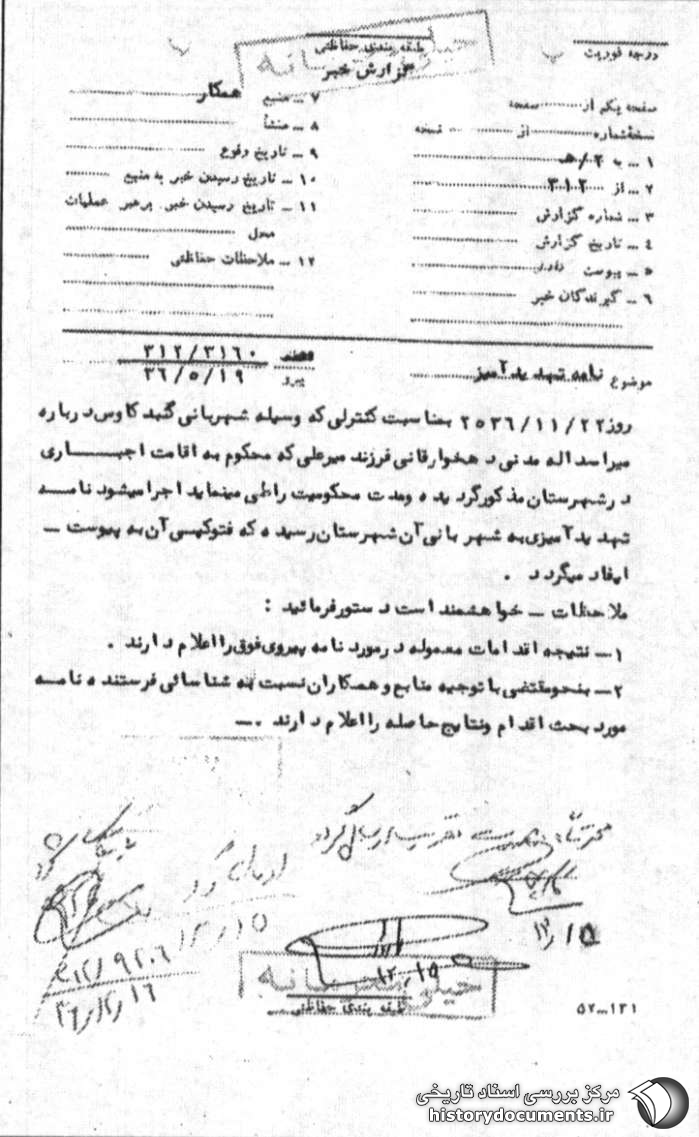 خیلی محرمانه
درجه فوریت
طبقه بندی حفاظتی
گزارش خبر
صفحه یکم از صفحه
نسخهٔ شماره از نسخه
۱ – به ۰۲/هـ
۲ – از ۳۱۲
۳ – شماره گزارش
۴ – تاریخ گزارش
۵ – پیوست دارد
۶ – گیرندگان خبر
۷ – منبع همکار
۸ – منشأ
۹ – تاریخ وقوع
۱۰ – تاریخ رسیدن خبر به منبع
۱۱ – تاریخ رسیدن خبر برهبر عملیات
محل
۱۲ – ملاحظات حفاظتی
موضوع نامه تهدید آمیز
پیرو ۳۱۲/۳۱۶۰
۳۶/۵/۱۹
روز ۲۵۳۶/۱۱/۲۲ بمناسبت کنترلی که وسیله شهربانی گنبد کاوس درباره
میراسداله مدنی دهخوارقانی فرزند میرعلی که محکوم به اقامت اجباری
در شهرستان مذکور گردیده ومدت محکومیت را طی مینماید اجرا میشود نامه
تهدید آمیزی به شهربانی آن شهرستان رسیده که فتوکپی آن به پیوست –
ایفاد میگردد .
ملاحظات – خواهشمند است دستور فرمائید :
۱– نتیجه اقدامات معموله در مورد نامه پیروی فوق را اعلام دارند .
۲– بنحو مقتضی با توجیه منابع و همکاران نسبت به شناسائی فرستنده نامه
مورد بحث اقدام ونتایج حاصله را اعلام دارند .–
ارسال گردد
۱۲/۱۵
۱۲/۱۵
۱۲/۱۵
۳۶/۱۲/۱۶
خیلی محرمانه
طبقه بندی حفاظتی
۵۲–۱۳۱
مرکز بررسی اسناد تاریخی
historydocuments.ir